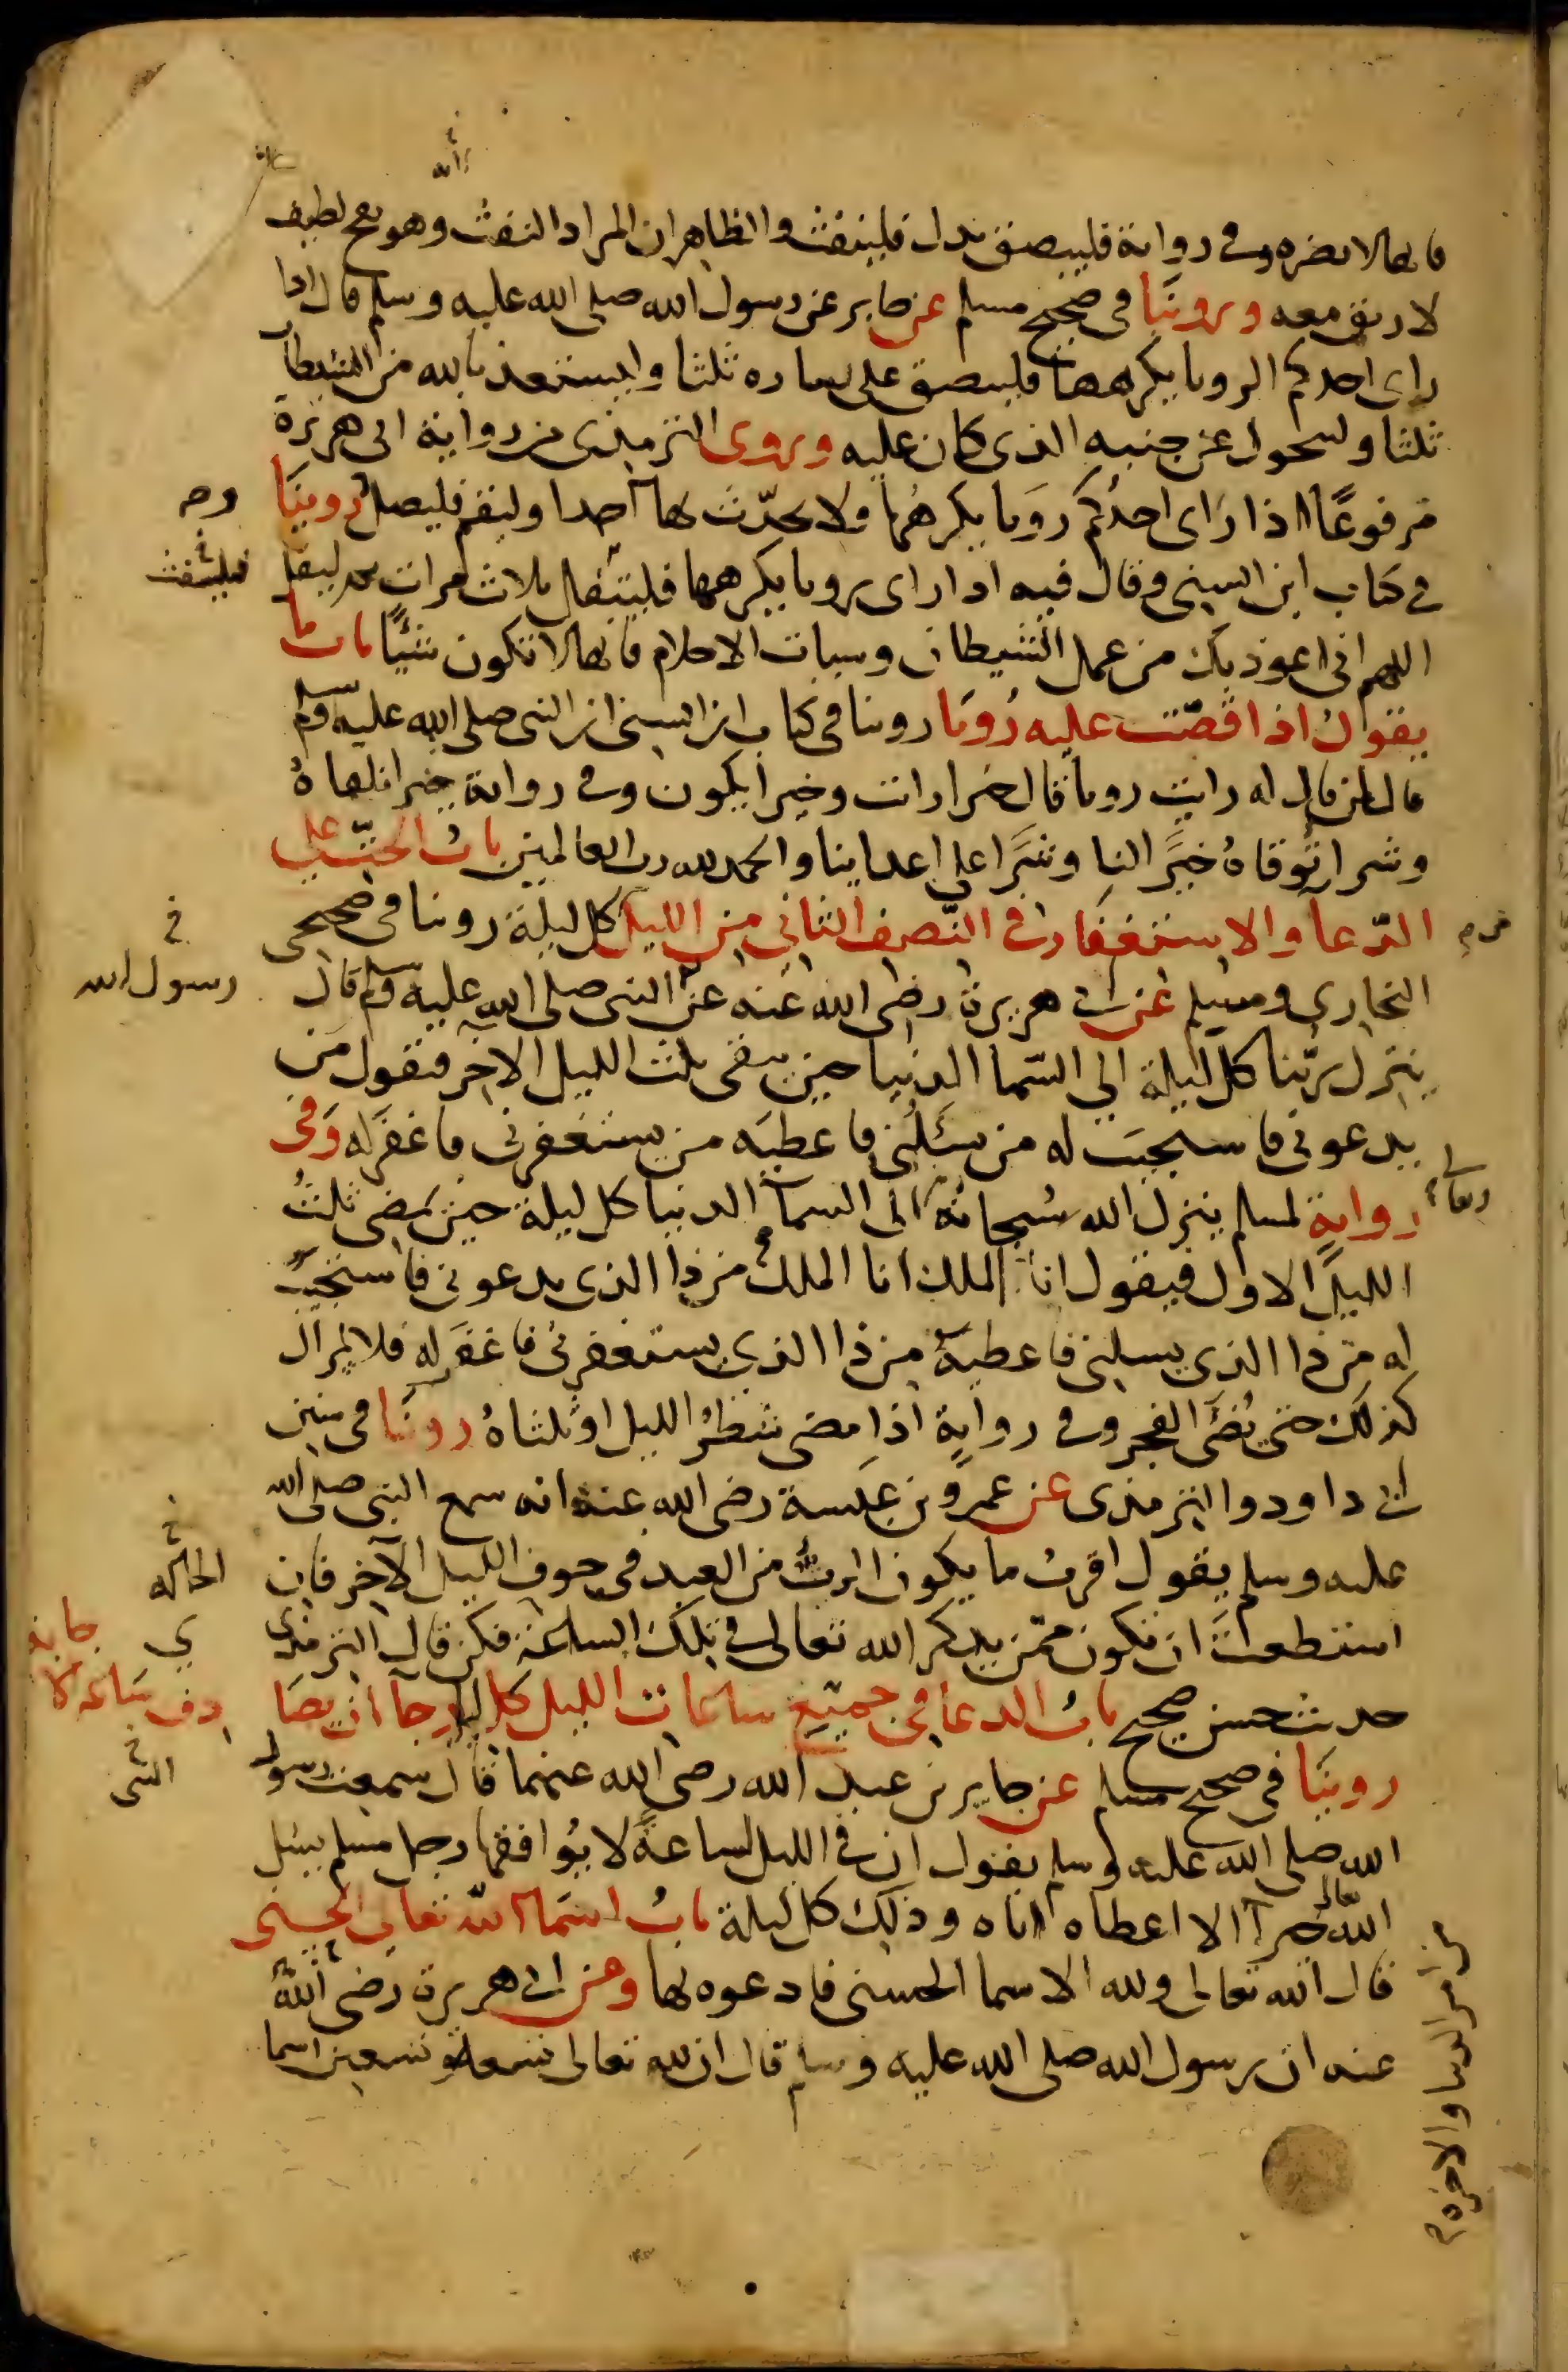 فانها لا تضره وفي رواية فليبصق بدل فلينفث والظاهر ان المراد النفث وهو نفخ لطيف
لا ريق معه وروينا في صحيح مسلم عن جابر عن رسول الله صلى الله عليه وسلم قال اذا
راى احدكم الرويا يكرهها فليبصق على يساره ثلثا وليستعذ بالله من الشيطان
ثلثا وليتحول عن جنبه الذي كان عليه وروى الترمذي من رواية ابي هريرة
مرفوعًا اذا رَاى احدُكم رويا يكرهُها ولا يحدّث بها احدا وليقم فليصل روينَا
في كتاب ابن السني وقال فيه اذا راى رويا يكرهها فليتفل ثلاث مرات ثم ليقل
اللهم اني اعوذ بك من عمل الشيطان وسيات الاحلام فانها لا تكون شيًا باب ما
يقول اذا قصّت عليه رُويَا روينا في كتاب ابن السني ان النبي صلى الله عليه وسلم
قال لمن قال له رايت رويا قال خيرا رايت وخيرا يكون وفي رواية خيرا تلقاهُ
وشرا تُوقاهُ خيرًا لنا وشرًا على اعداينا والحمد لله رب العالمين بابُ الحثّ على
الدّعا والاستغفار في النّصف الثاني من الليل كل ليلة روينا في صحيحي
البخاري ومسلم عن ابي هريرة رضى الله عنه عن النبي صلى الله عليه وسلم قال
ينزل ربّنا كل ليلة الى السّما الدنيا حين يبقى ثلث الليل الاخر فيقول مَن
يدعوني فاستجيبَ له من يسئلُني فاعطيَه من يستغفرني فاغفرَ له وَفي
روايةٍ لمسلم ينزل الله سُبحانه الى السما الدنيا كل ليلة حين يمضي ثلثُ
الليل الاول فيقول انا الملك انا الملك من ذا الذي يدعوني فاستجيبَ
له من ذا الذي يسلني فاعطيهُ من ذا الذي يستغفرني فاغفرَ له فلا يزال
كذلك حتى يُضيَ الفجر وفي روايةٍ اذا مضى شطرُ الليل او ثلثاهُ روينَا في سنن
ابي داود والترمذي عن عمرو بن عبسة رضى الله عنه انه سمع النبي صلى الله
عليه وسلم يقول اقربُ ما يكون الربُّ من العبد في جوف الليل الآخر فان
استطعتَ ان تكون ممّن يذكر الله تعالى في تلك الساعة فكن قال الترمذي
حديث حسن صحيح بابُ الدعا في جميع ساعات الليل كل ليلة رجا ان يصَا
روينَا في صحيح مسلم عن جابر بن عبد الله رضى الله عنهما قال سمعت رسول
الله صلى الله عليه وسلم يقول ان في الليل لساعةً لا يُوافقها رجل مسلم يسئل
الله تعالى خيرا الا اعطاه اياه وذلك كل ليلة بابُ اسمَا الله تعالى الحسنى
قال الله تعالى ولله الاسما الحسنى فادعوه بها وعن ابي هريرة رضى اللهُ
عنه ان رسول الله صلى الله عليه وسلم قال ان لله تعالى تسعة وتسعين اسما
فلينفث
رسول الله
تعالى
النبي
من امر الدنيا والاخرة